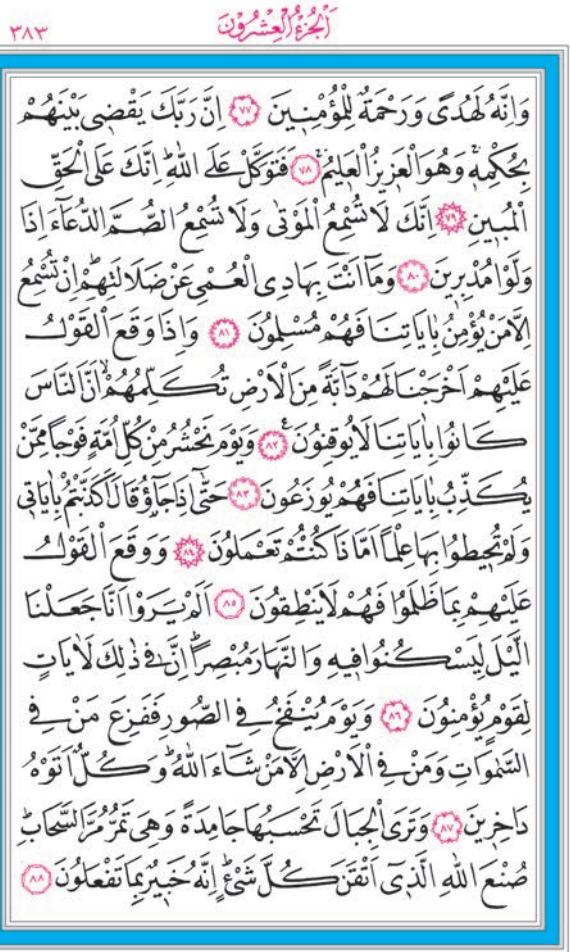 اَلْجُزْءُ الْعِشْرُونَ
٣٨٣
وَاِنَّهُ لَهُدًى وَرَحْمَةٌ لِلْمُؤْمِنٖينَ ﴿٧٧﴾ اِنَّ رَبَّكَ يَقْضٖى بَيْنَهُمْ
بِحُكْمِهٖۚ وَهُوَ الْعَزٖيزُ الْعَلٖيمُۙ ﴿٧٨﴾ فَتَوَكَّلْ عَلَى اللّٰهِؕ اِنَّكَ عَلَى الْحَقِّ
الْمُبٖينِ ﴿٧٩﴾ اِنَّكَ لَا تُسْمِعُ الْمَوْتٰى وَلَا تُسْمِعُ الصُّمَّ الدُّعَٓاءَ اِذَا
وَلَّوْا مُدْبِرٖينَ ﴿٨٠﴾ وَمَٓا اَنْتَ بِهَادِى الْعُمْىِ عَنْ ضَلَالَتِهِمْؕ اِنْ تُسْمِعُ
اِلَّا مَنْ يُؤْمِنُ بِاٰيَاتِنَا فَهُمْ مُسْلِمُونَ ﴿٨١﴾ وَاِذَا وَقَعَ الْقَوْلُ
عَلَيْهِمْ اَخْرَجْنَا لَهُمْ دَٓابَّةً مِنَ الْاَرْضِ تُكَلِّمُهُمْۙ اَنَّ النَّاسَ
كَانُوا بِاٰيَاتِنَا لَا يُوقِنُونَࣖ ﴿٨٢﴾ وَيَوْمَ نَحْشُرُ مِنْ كُلِّ اُمَّةٍ فَوْجًا مِمَّنْ
يُكَذِّبُ بِاٰيَاتِنَا فَهُمْ يُوزَعُونَ ﴿٨٣﴾ حَتّٰٓى اِذَا جَٓاؤُ۫ قَالَ اَكَذَّبْتُمْ بِاٰيَاتٖى
وَلَمْ تُحٖيطُوا بِهَا عِلْمًا اَمَّا ذَا كُنْتُمْ تَعْمَلُونَ ﴿٨٤﴾ وَوَقَعَ الْقَوْلُ
عَلَيْهِمْ بِمَا ظَلَمُوا فَهُمْ لَا يَنْطِقُونَ ﴿٨٥﴾ اَلَمْ يَرَوْا اَنَّا جَعَلْنَا
الَّيْلَ لِيَسْكُنُوا فٖيهِ وَالنَّهَارَ مُبْصِرًاؕ اِنَّ فٖى ذٰلِكَ لَاٰيَاتٍ
لِقَوْمٍ يُؤْمِنُونَ ﴿٨٦﴾ وَيَوْمَ يُنْفَخُ فِى الصُّورِ فَفَزِعَ مَنْ فِى
السَّمٰوَاتِ وَمَنْ فِى الْاَرْضِ اِلَّا مَنْ شَٓاءَ اللّٰهُؕ وَكُلٌّ اَتَوْهُ
دَاخِرٖينَ ﴿٨٧﴾ وَتَرَى الْجِبَالَ تَحْسَبُهَا جَامِدَةً وَهِىَ تَمُرُّ مَرَّ السَّحَابِؕ
صُنْعَ اللّٰهِ الَّذٖٓى اَتْقَنَ كُلَّ شَىْءٍؕ اِنَّهُ خَبٖيرٌ بِمَا تَفْعَلُونَ ﴿٨٨﴾